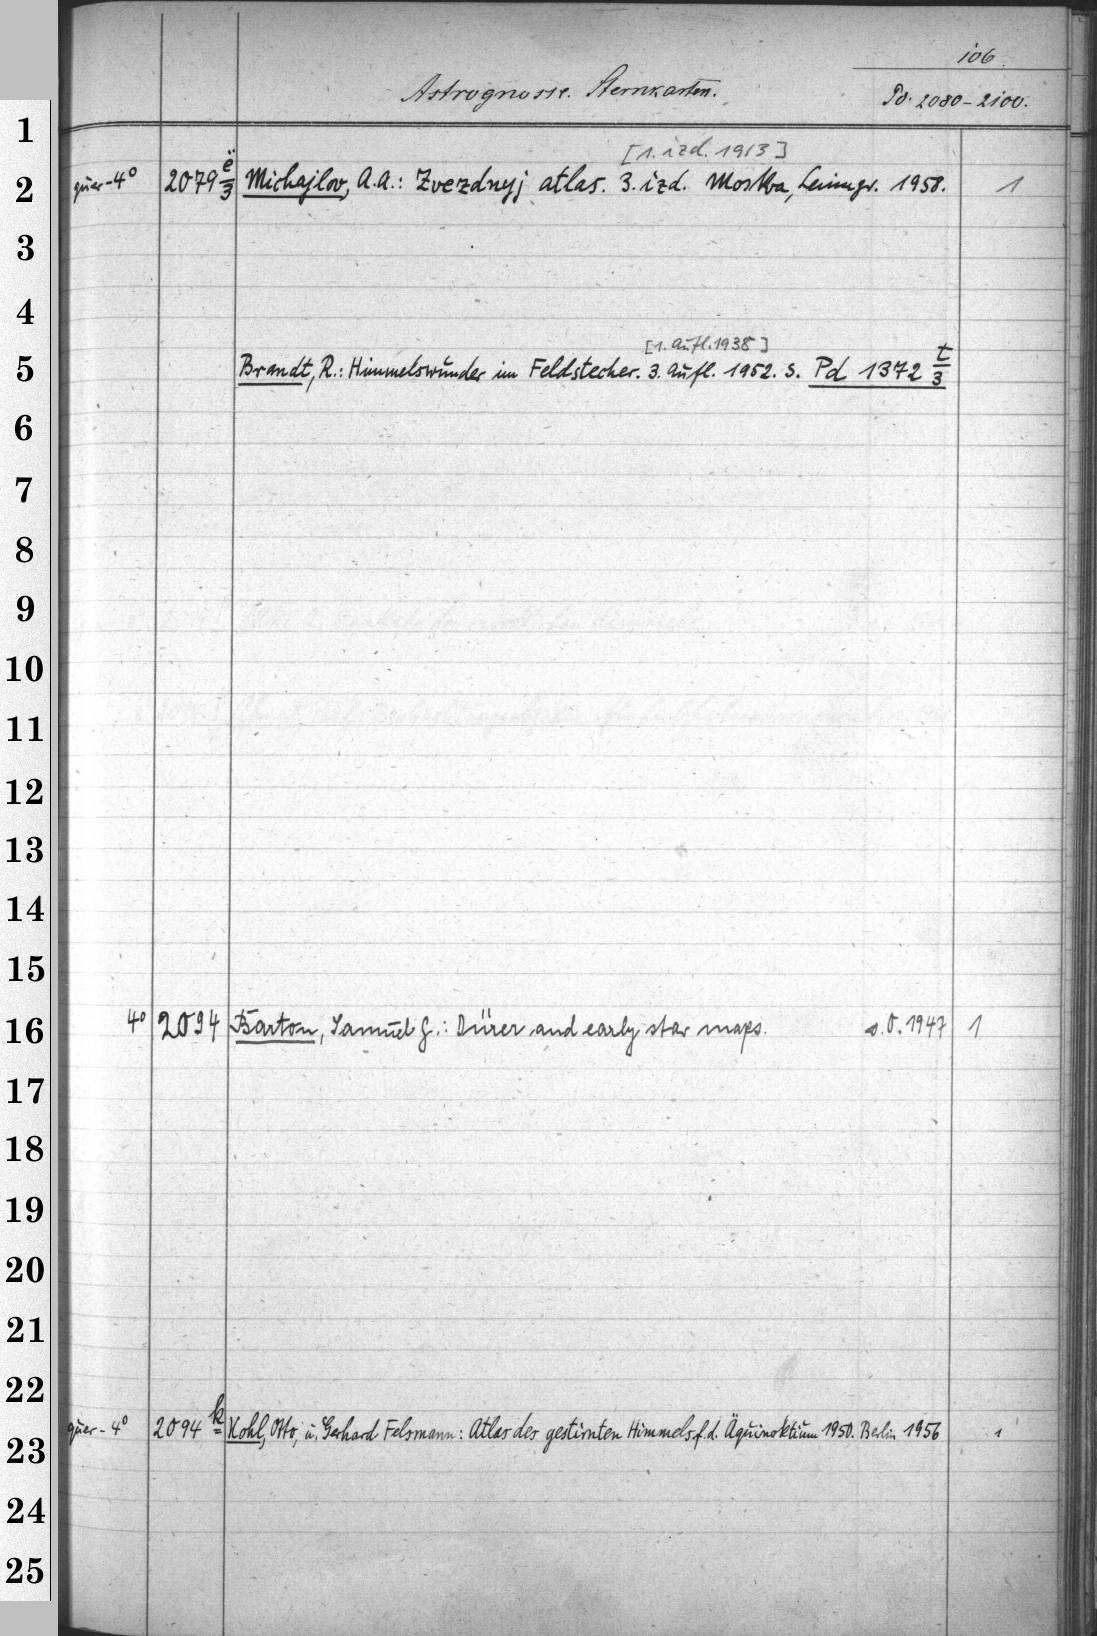 106
Astrognosie. Sternkarten.
Pd. 2080-2100.
1
[1. izd. 1913]
2 quer-4° 2079 ë/3 Michajlov, A.A.: Zvezdnyj atlas. 3. izd. Moskva, Leningr. 1958. 1
3
4
[1. Aufl. 1938]
5 Brandt, R.: Himmelswunder im Feldstecher. 3. Aufl. 1952. s. Pd 1372 t/3
6
7
8
9
10
11
12
13
14
15
16 4° 2094 Barton, Samuel G.: Dürer and early star maps. o.O. 1947 1
17
18
19
20
21
22
23 quer-4° 2094 k Kohl, Otto, u. Gerhard Felsmann: Atlas des gestirnten Himmels f. d. Äquinoktium 1950. Berlin 1956 1
24
25